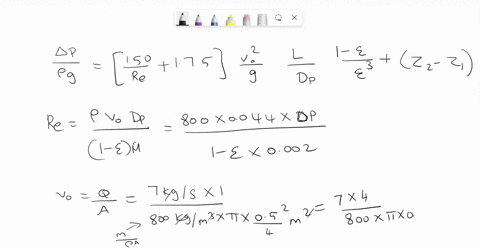 ΔP/ρg = [150/Re + 1.75] v₀²/g L/Dp (1-ε)/ε³ + (Z₂ - Z₁)
Re = ρ v₀ Dp/(1-ε)μ = 800 × 0.044 × DP/1-ε × 0.002
v₀ = Q/A = 7 kg/s × 1/800 kg/m³ × π × 0.5²/4 m² = 7 × 4/800 × π × 0